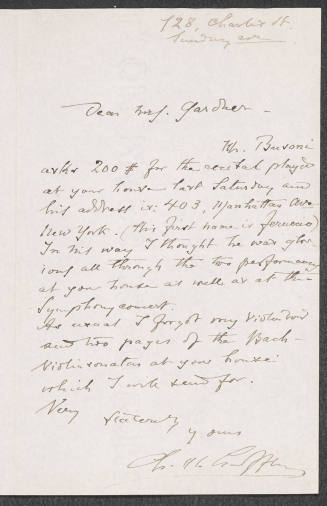 128, Charles St.
Sunday
Dear Mrs. Gardner -
Mr. Busoni
asks 200 $ for the recital played
at your house last Saturday and
his address is: 403, Manhattan Ave
New York. (this first name is Ferrucio)
In his way I thought he was glor-
ious all through the two performances
at your house as well as at the
Symphony concert.
As usual I forgot my violin bow
and two pages of the Bach-
Violinsonatas at your house:
which I will send for.
Very
sincerely
yours
Ch. M. Loeffler